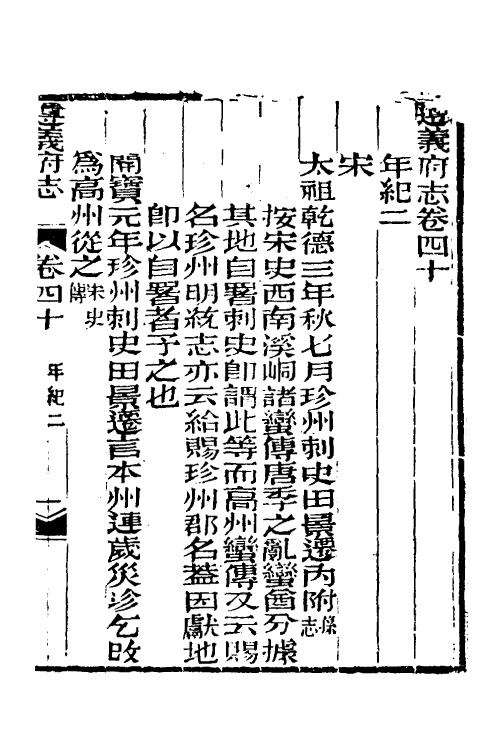 遵義府志卷四十
年紀二
宋
太祖乾德三年秋七月珍州刺史田景遷內附條志
按宋史西南溪峒諸蠻傳唐季之亂蠻酋分據
其地自署刺史卽謂此等而高州蠻傳又云賜
名珍州明統志亦云給賜珍州郡名蓋因獻地
卽以自署者予之也
開寶元年珍州刺史田景遷言本州連歲災沴乞改
爲高州從之宋史傳
遵義府志 卷四十 年紀二 一